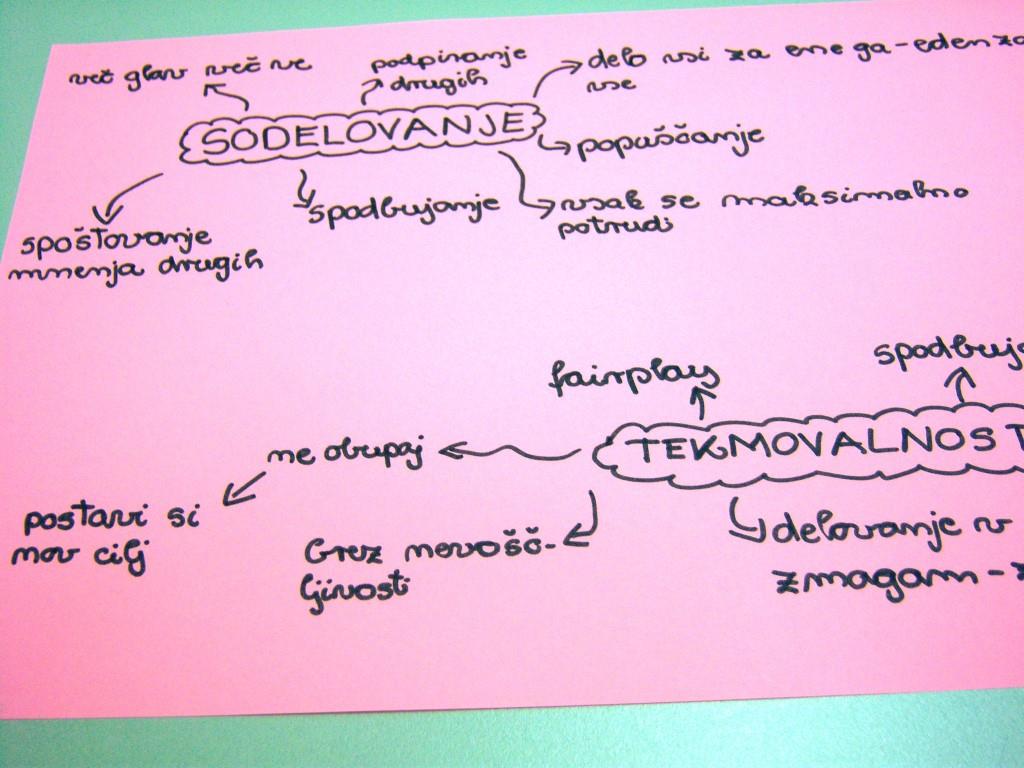 več glav več ve
podpiranje
drugih
delo vsi za enega-eden za
vse
SODELOVANJE
popuščanje
spodbujanje
vsak se maksimalno
potrudi
spoštovanje
mnenja drugih
fairplay
spodbuja
TEKMOVALNOST
ne obupaj
postavi si
nov cilj
brez nevošč-
ljivosti
delovanje v
zmagam-z